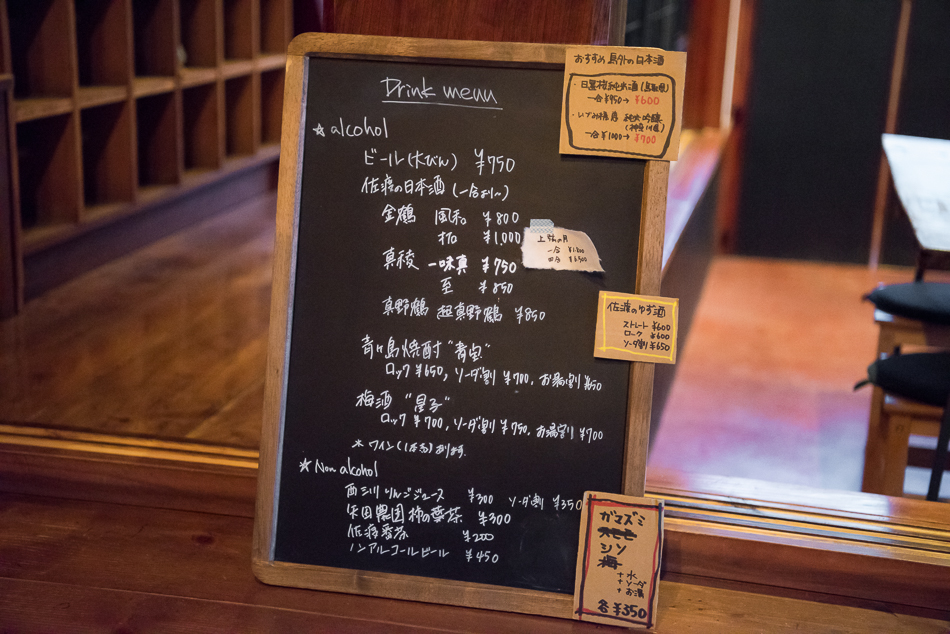 Drink menu
☆ alcohol
ビール(大びん) ¥750
佐渡の日本酒(一合より〜)
金鶴 風和 ¥800
拓 ¥1,000
真稜 一味真 ¥750
至 ¥850
真野鶴 超真野鶴 ¥850
青ヶ島焼酎"青酎"
ロック ¥650, ソーダ割 ¥700, お湯割 ¥650
梅酒 "星子"
ロック ¥700, ソーダ割 ¥750, お湯割 ¥700
* ワイン(ボトル)あります。
☆ Non alcohol
西三川りんごジュース ¥300 ソーダ割 ¥350
矢田農園 柿の葉茶 ¥300
佐渡番茶 ¥200
ノンアルコールビール ¥450
おすすめ島外の日本酒
・日置桜純米酒(鳥取県)
一合¥950→ ¥600
・いづみ橋 純米吟醸
(神奈川県)
一合¥1000→ ¥700
上弦の月
一合 ¥1,800
四合 ¥6,900
佐渡のゆず酒
ストレート ¥600
ロック ¥600
ソーダ割 ¥650
ガマズミ
シソ
梅
+水
+ソーダ
+お湯
各¥350